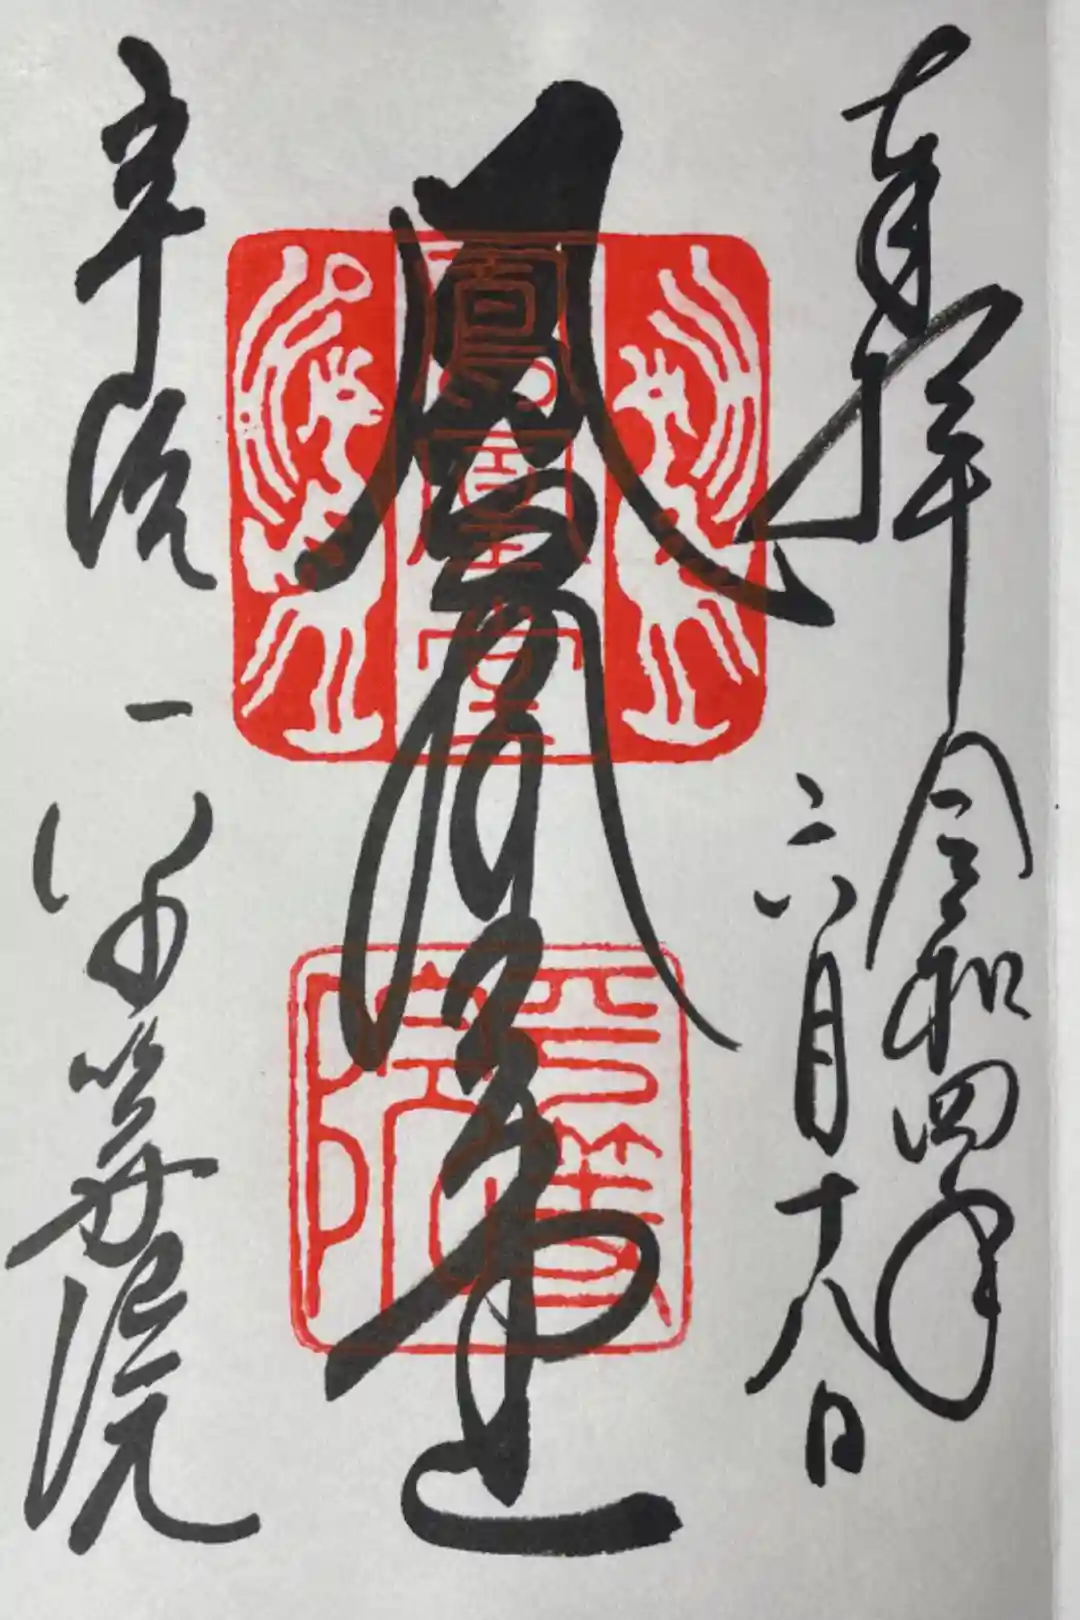 奉拝 令和四年
六月十八日
鳳凰堂
鳳凰堂
平等
院
宇治 平等院